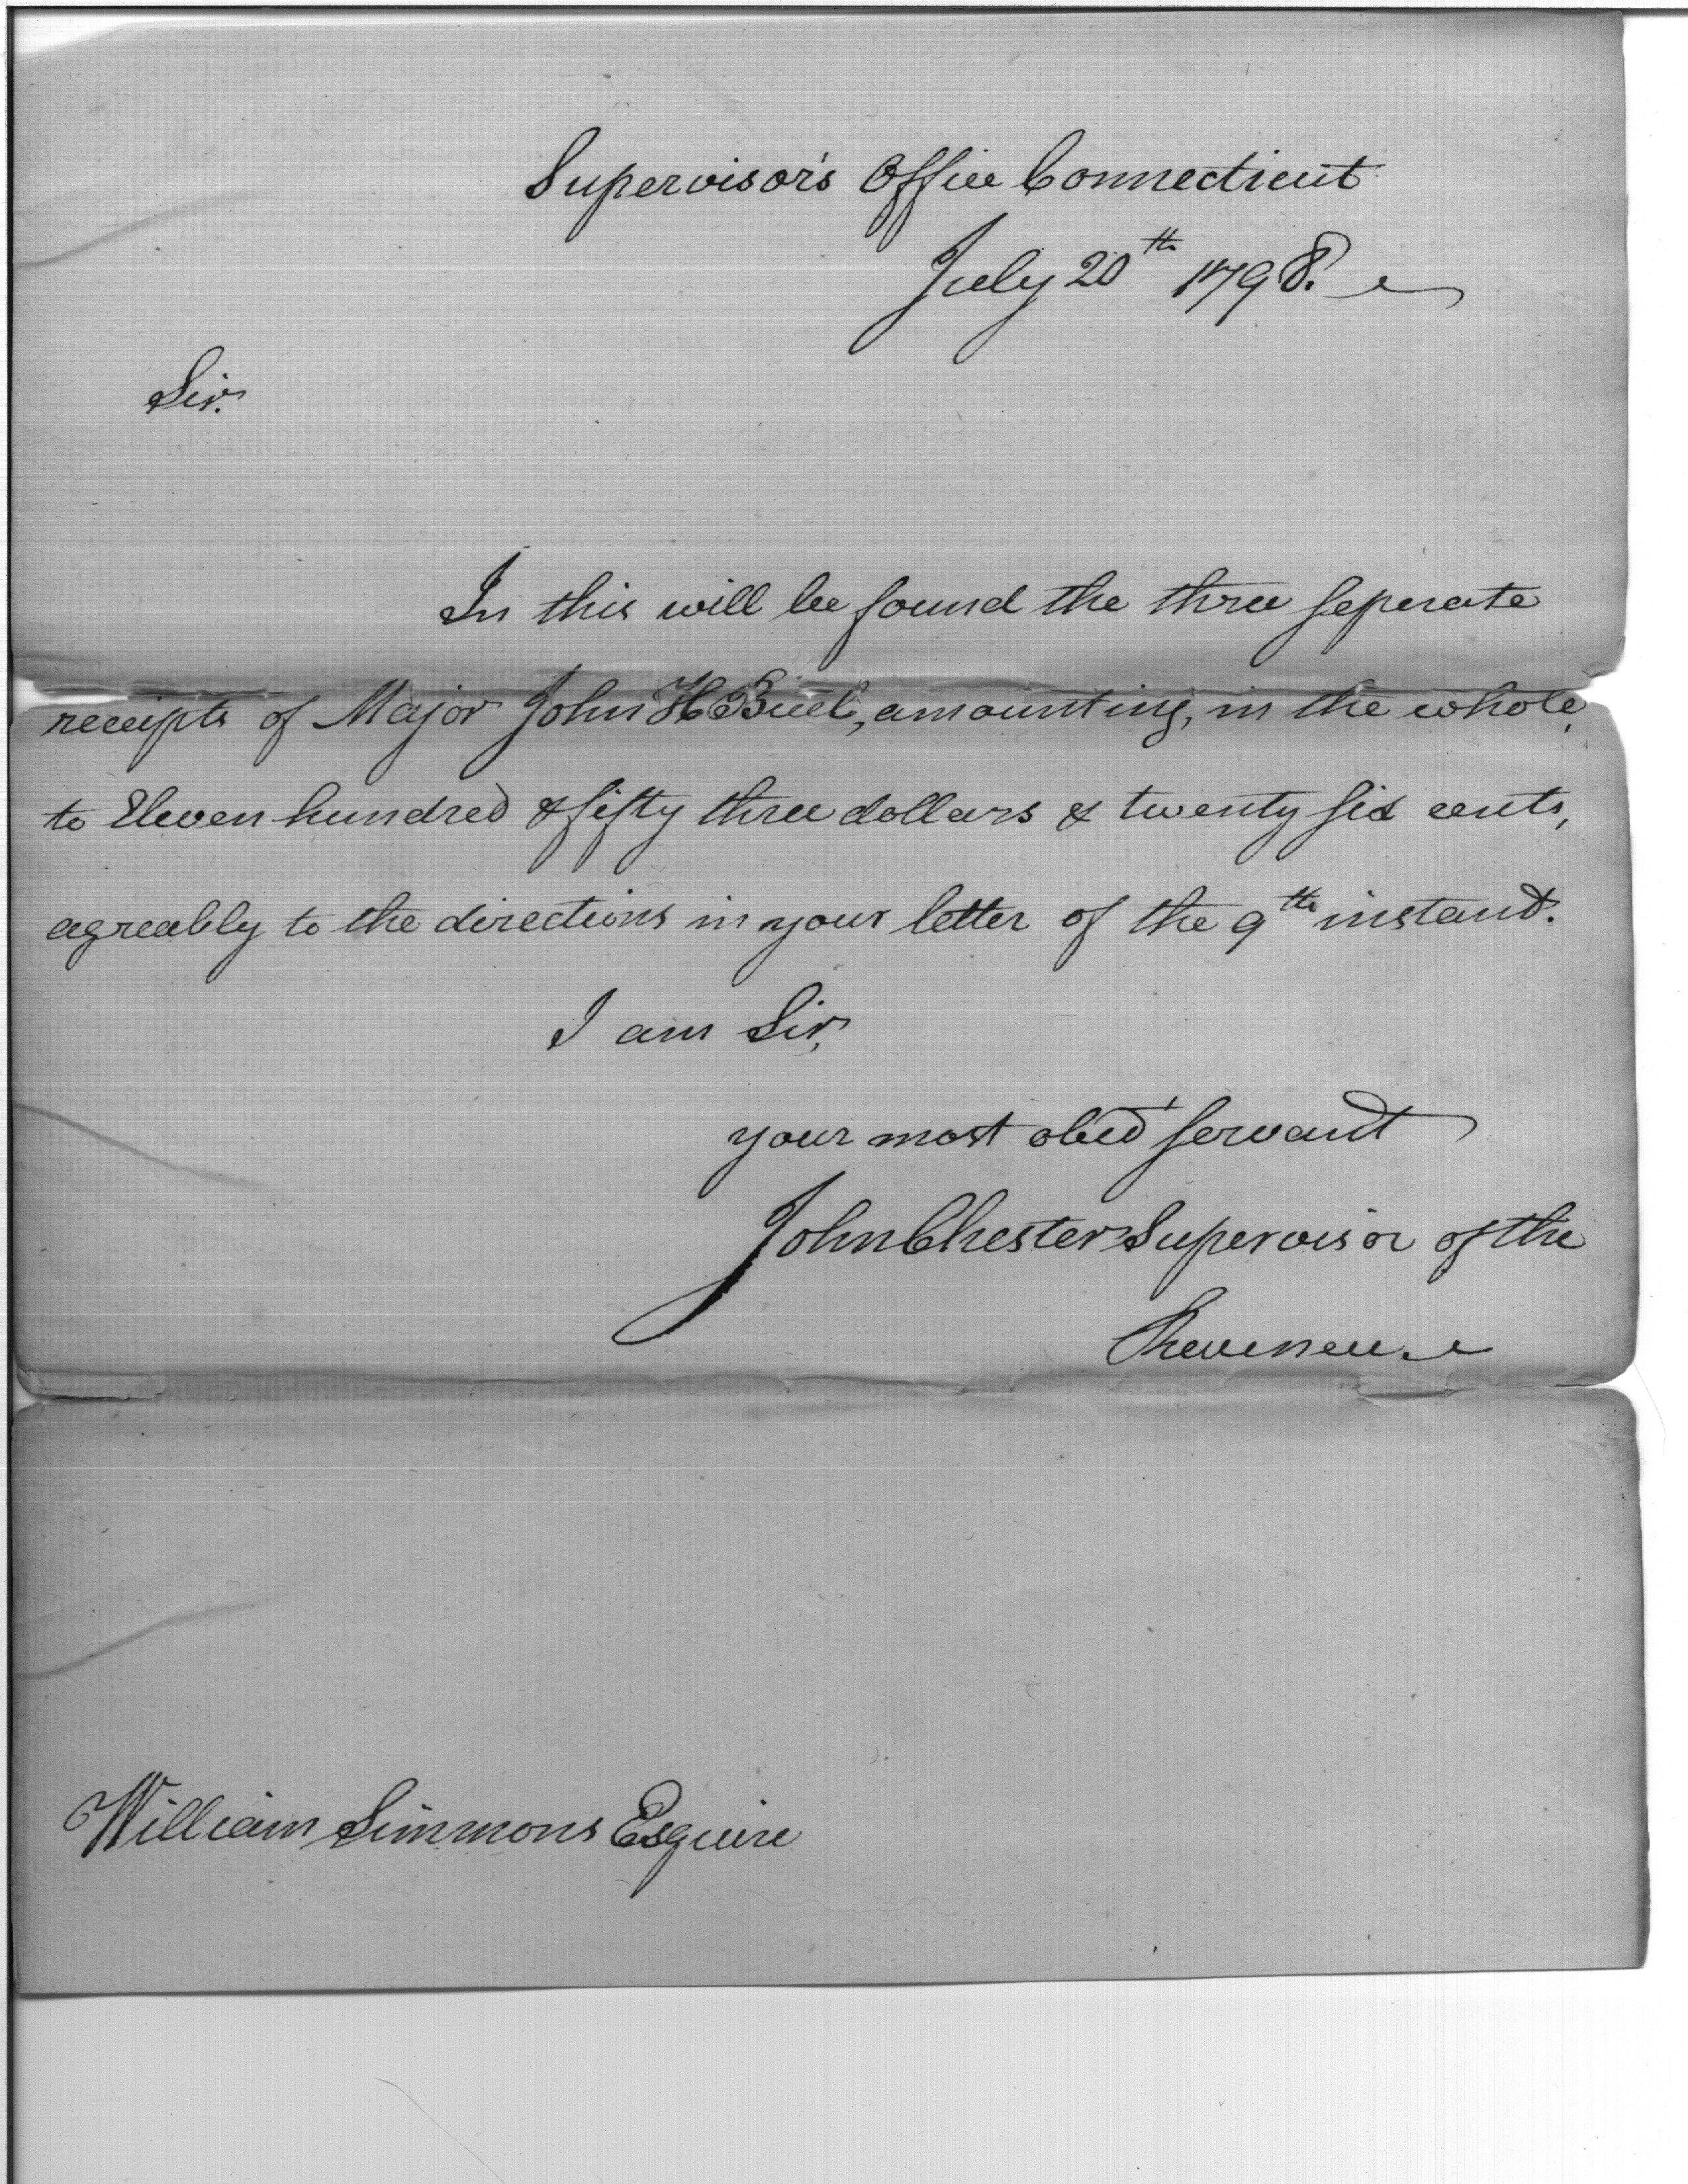 Supervisor's Office Connecticut
July 20th 1798.
Sir.
In this will be found the three seperate
receipts of Major John H Buel, amounting, in the whole,
to Eleven hundred & fifty three dollars & twenty six cents,
agreably to the directions in your letter of the 9th instant.
I am Sir,
your most obed' servant
John Chester Supervisor of the
Revenue
William Simmons Esquire